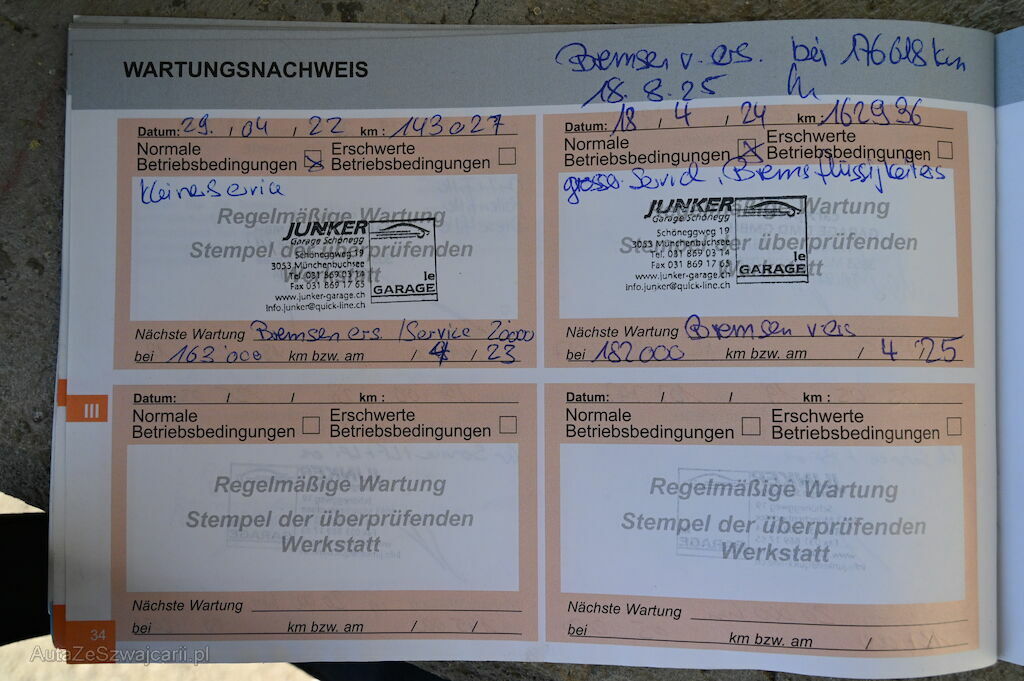 WARTUNGSNACHWEIS
Bremsen v. ers. bei 176618 km
18. 8. 25
Datum: 29. / 04 / 22 km: 143027
Normale Betriebsbedingungen
Erschwerte Betriebsbedingungen
kleiner Service
Regelmäßige Wartung
Stempel der überprüfenden
JUNKER
Garage Schönegg
Schöneggweg 19
3053 Münchenbuchsee
Tel. 031 869 03 14
Fax 031 869 17 65
www.junker-garage.ch
info.junker@quick-line.ch
le GARAGE
Nächste Wartung Bremsen ers. / Service 20000
bei 163'000 km bzw. am / 4 / 23
Datum: 18 / 4 / 24 km: 162936
Normale Betriebsbedingungen
Erschwerte Betriebsbedingungen
grosse Service, Bremsflüssigkeit ers
Wartung
der überprüfenden
JUNKER
Garage Schönegg
Schöneggweg 19
3053 Münchenbuchsee
Tel. 031 869 03 14
Fax 031 869 17 65
www.junker-garage.ch
info.junker@quick-line.ch
le GARAGE
Nächste Wartung Bremsen v ers
bei 182000 km bzw. am / 4 / 25
III
Datum: / / km :
Normale Betriebsbedingungen
Erschwerte Betriebsbedingungen
Regelmäßige Wartung
Stempel der überprüfenden
Werkstatt
Nächste Wartung
bei km bzw. am / /
Datum: / / km :
Normale Betriebsbedingungen
Erschwerte Betriebsbedingungen
Regelmäßige Wartung
Stempel der überprüfenden
Werkstatt
Nächste Wartung
bei km bzw. am / /
34
AutaZeSzwajcarii.pl